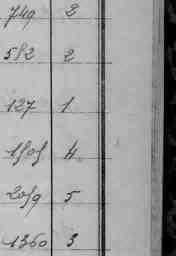 749 2
582 2
127 1
1505 4
2059 5
1360 3